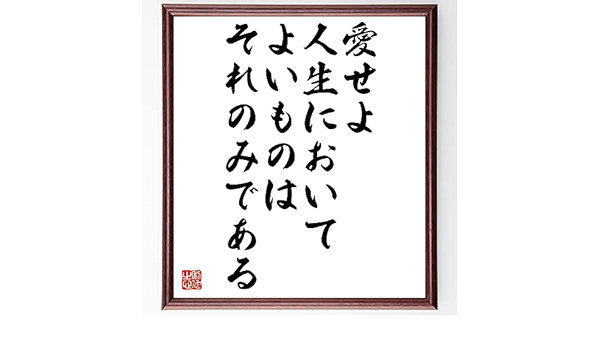 愛せよ
人生において
よいものは
それのみである